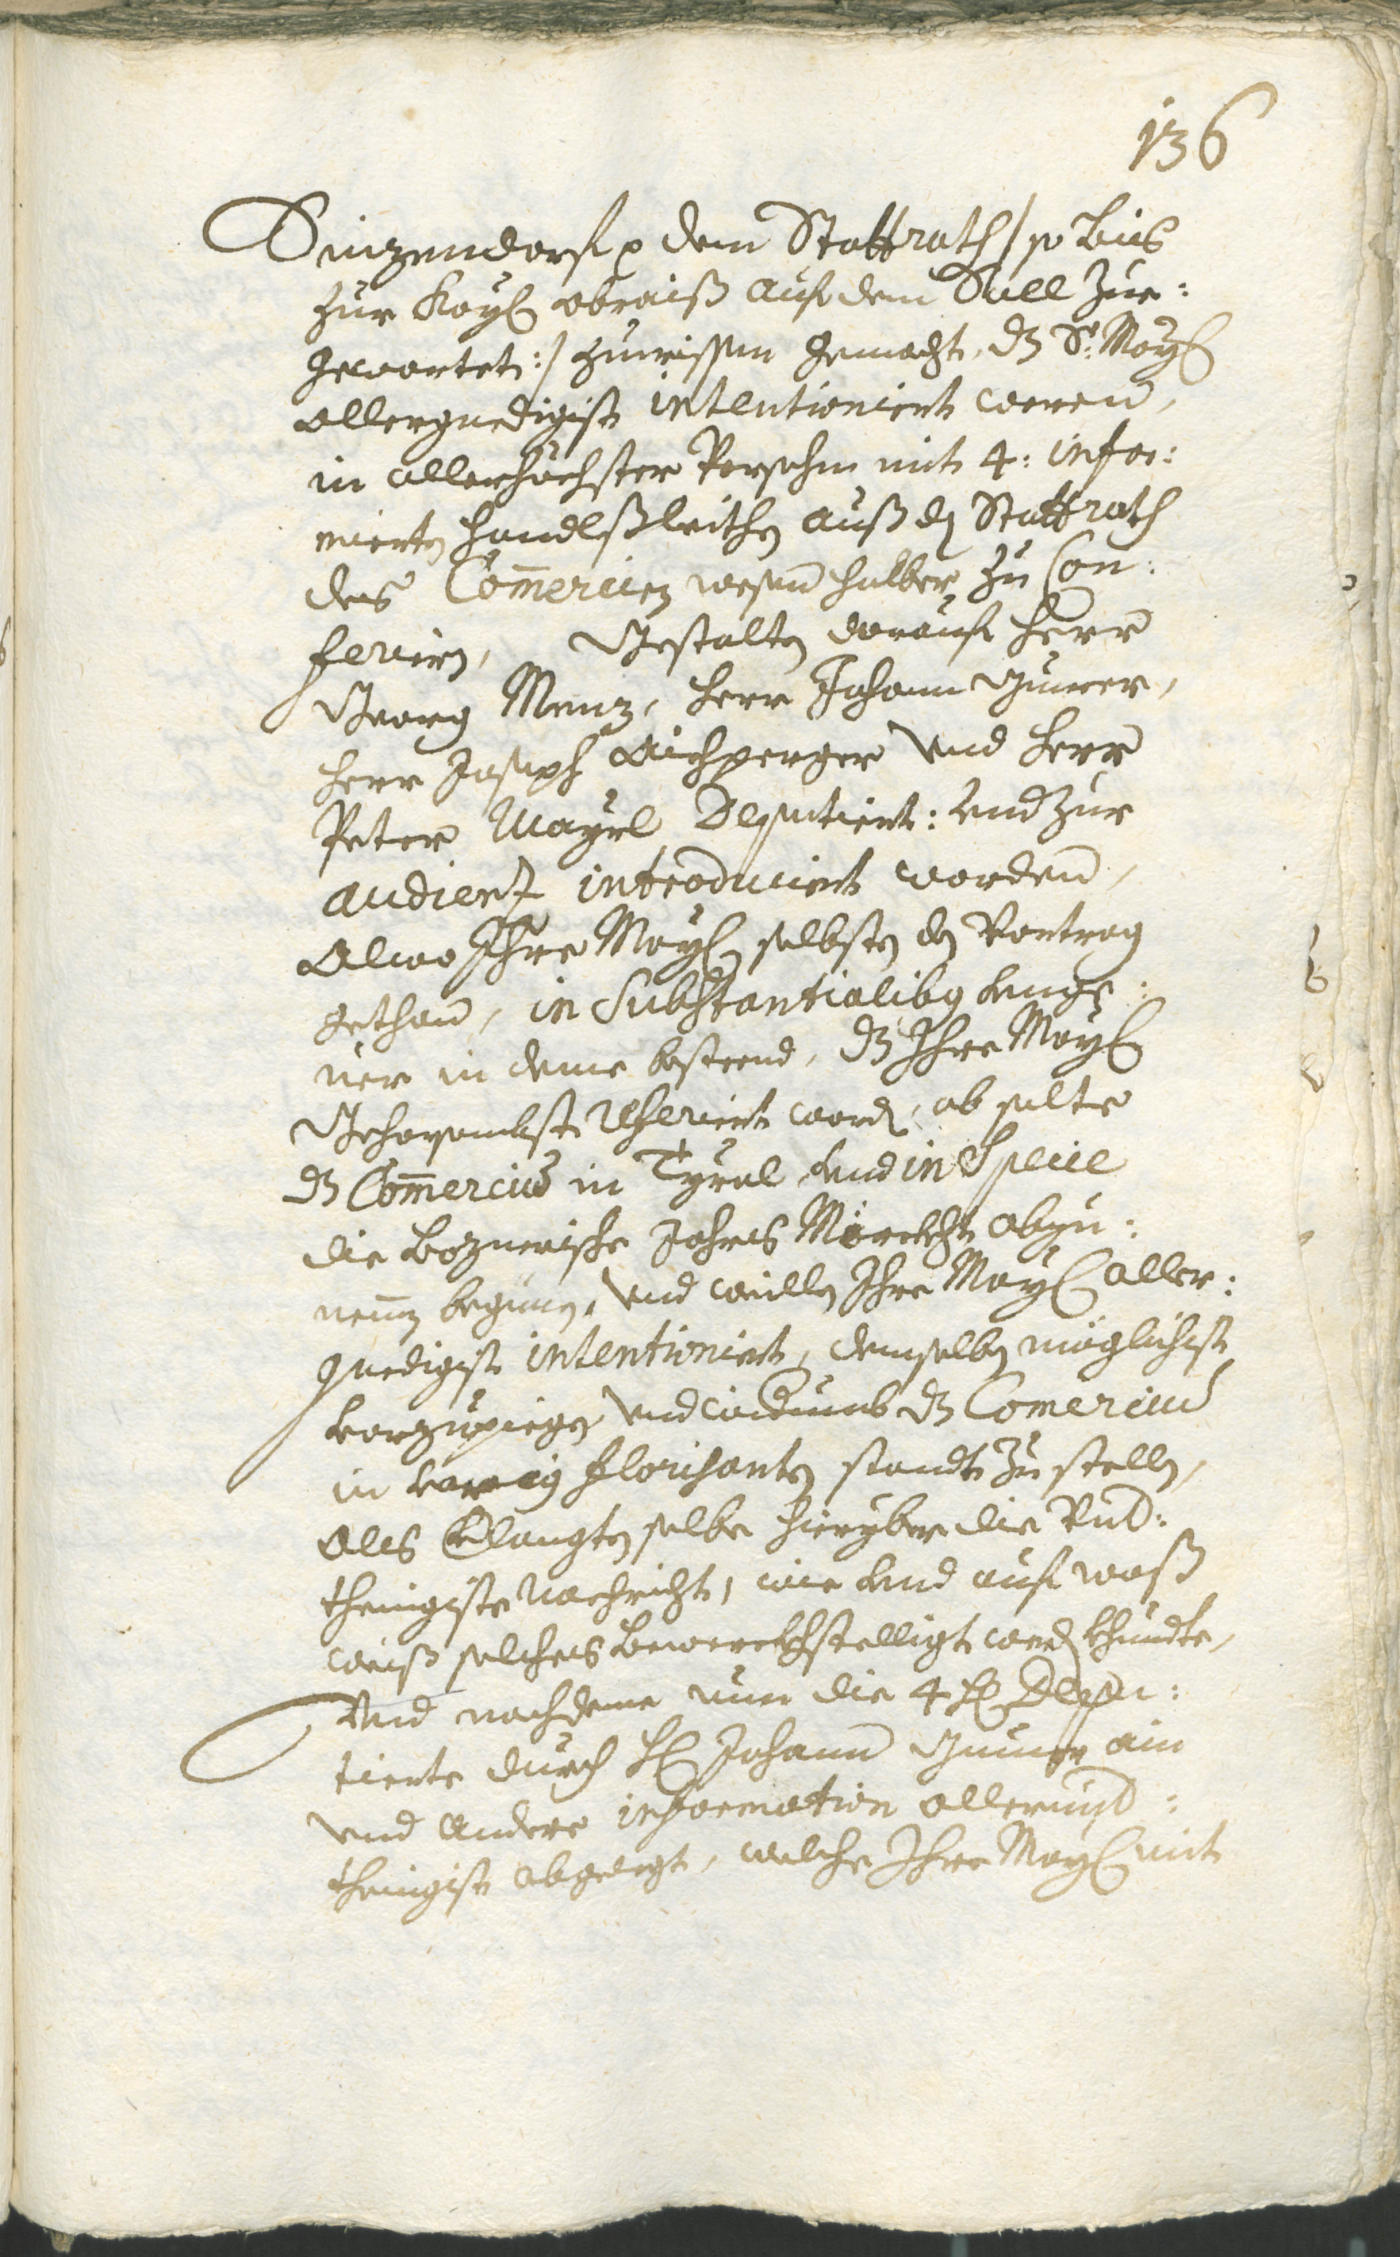 136
Sinzendorf p dem Stattrath /:so bis
zur Kay: abraiß auf dem Sall zue:
gewartet:/ zuwissen gemacht, dz Se: May:
allergnedigist intentioniert weren,
in allerhöchster Persohn mit 4: infor:
mierten Handlsleithen auß dem Stattrath
des Com̄ercien wesens halber zu Con:
ferirn, Gestalten darauf Herr
Georg Menz, Herr Johann Gumer,
Herr Joseph Aichperger und Herr
Peter Mayrl Deputiert: und zur
audienz introduciert worden,
Alwo Ihre May: selbsten den Vortrag
gethan, in Substantialibus
in deme bestend, dz Ihre May:
Gehorsambst referiert word, ob solte
dz Com̄ercium in Tyrol und in Specie
die Boznerische Jahrs Märckht abzu:
nemen beginnen, und weillen Ihre May: aller:
gnedigist intentioniert, demselben möglichist
vorzupiegen, und widerumb dz Comercium
in vorig florisanten standt zu stellen,
Als Verlangten selbe hieryber die Und:
thenigiste nachricht, wie und auf waß
weiß solches bewerckhstelligt werden khundte,
Und nachdeme nun die 4 H: Depu:
tierte durch H: Johann Gumer ain
und andere information allerund:
thenigist abgelegt, welche Ihre May: mit